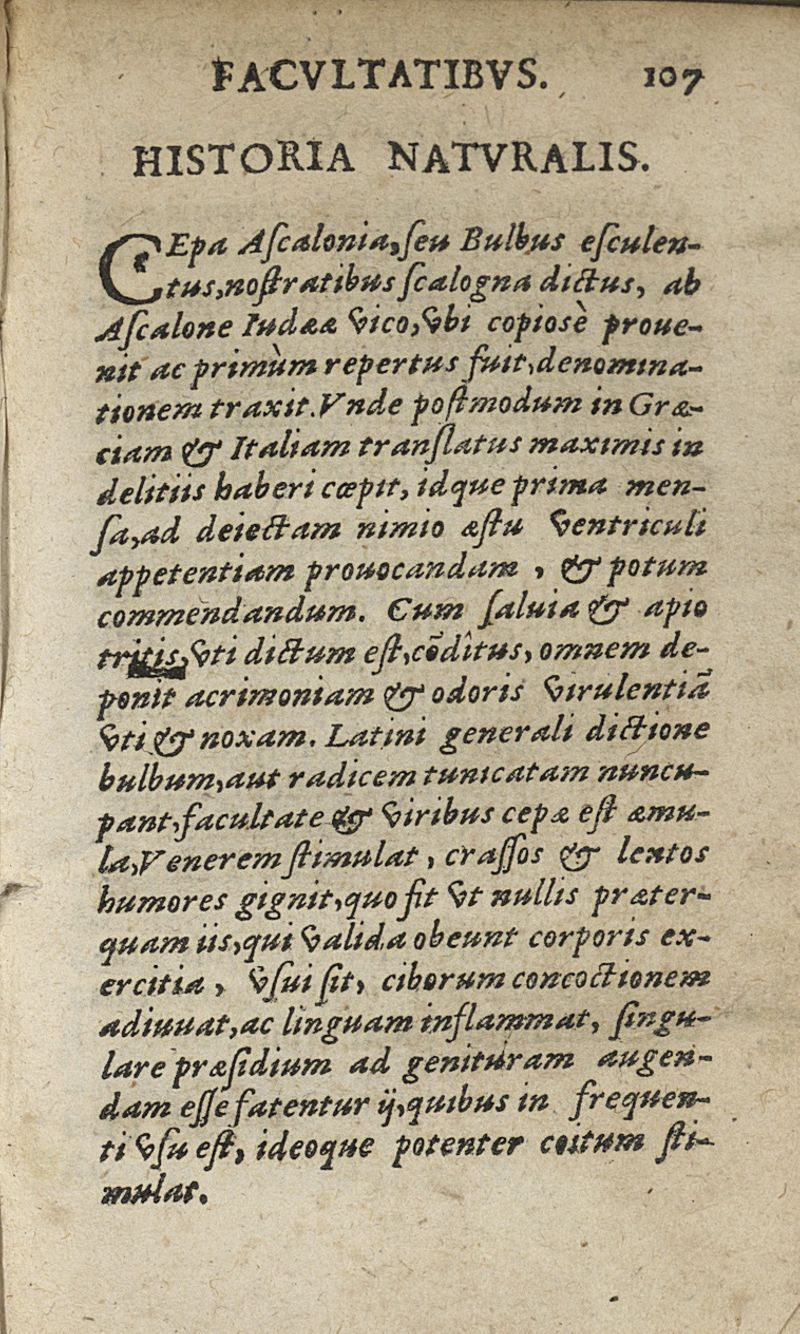 FACVLTATIBVS. 107
HISTORIA NATVRALIS.
CEpa Aſcalonia, ſeu Bulbus eſculen-
tus, noſtratibus ſcalogna dictus, ab
Aſcalone Iudææ vico, vbi copiosè proue-
nit ac primùm repertus fuit, denomina-
tionem traxit. Vnde poſtmodum in Græ-
ciam & Italiam tranſlatus maximis in
delitiis haberi cœpit, idque prima men-
ſa, ad deiectam nimio æſtu ventriculi
appetentiam prouocandam, & potum
commendandum. Cum ſaluia & apio
tritis, vti dictum eſt, cōditus, omnem de-
ponit acrimoniam & odoris virulentiā
vti & noxam. Latini generali dictione
bulbum, aut radicem tunicatam nuncu-
pant, facultate & viribus cepæ eſt æmu-
la, Venerem ſtimulat, craſſos & lentos
humores gignit, quo fit vt nullis præter-
quam iis, qui valida obeunt corporis ex-
ercitia, vſui ſit, ciborum concoctionem
adiuuat, ac linguam inflammat, ſingu-
lare præſidium ad genituram augen-
dam eſſe fatentur ij, quibus in frequen-
ti vſu eſt, ideoque potenter coitum ſti-
mulat.